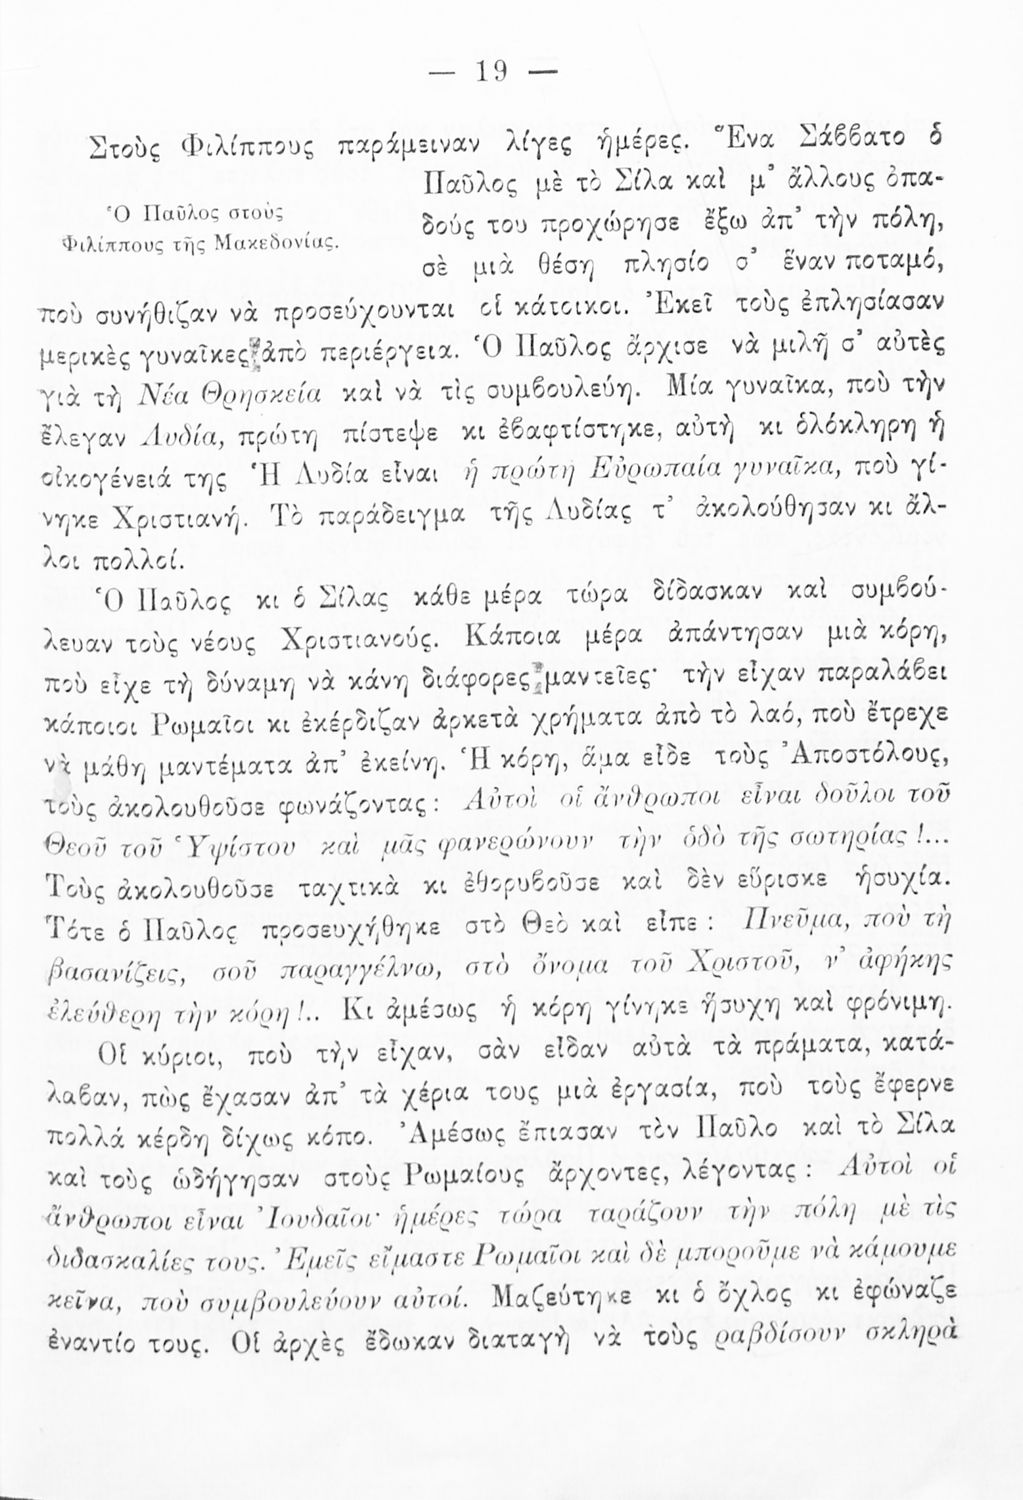 — 19 —
Στοὺς Φιλίππους παράμειναν λίγες ἡμέρες. Ἕνα Σάββατο ὁ
Παῦλος μὲ τὸ Σίλα καὶ μ᾿ ἄλλους ὀπα-
Ὁ Παῦλος στοὺς
Φιλίππους τῆς Μακεδονίας.
δούς του προχώρησε ἔξω ἀπ᾿ τὴν πόλη,
σὲ μιὰ θέση πλησίο σ᾿ ἕναν ποταμό,
ποὺ συνήθιζαν νὰ προσεύχουνται οἱ κάτοικοι. Ἐκεῖ τοὺς ἐπλησίασαν
μερικὲς γυναῖκες ἀπὸ περιέργεια. Ὁ Παῦλος ἄρχισε νὰ μιλῇ σ᾿ αὐτὲς
γιὰ τὴ Νέα Θρησκεία καὶ νὰ τὶς συμβουλεύῃ. Μία γυναῖκα, ποὺ τὴν
ἔλεγαν Λυδία, πρώτη πίστεψε κι ἐβαφτίστηκε, αὐτὴ κι ὁλόκληρη ἡ
οἰκογένειά της Ἡ Λυδία εἶναι ἡ πρώτη Εὐρωπαία γυναῖκα, ποὺ γί-
νηκε Χριστιανή. Τὸ παράδειγμα τῆς Λυδίας τ᾿ ἀκολούθησαν κι ἄλ-
λοι πολλοί.
Ὁ Παῦλος κι ὁ Σίλας κάθε μέρα τώρα δίδασκαν καὶ συμβού-
λευαν τοὺς νέους Χριστιανούς. Κάποια μέρα ἀπάντησαν μιὰ κόρη,
ποὺ εἶχε τὴ δύναμη νὰ κάνῃ διάφορες μαντεῖες· τὴν εἶχαν παραλάβει
κάποιοι Ρωμαῖοι κι ἐκέρδιζαν ἀρκετὰ χρήματα ἀπὸ τὸ λαό, ποὺ ἔτρεχε
νὰ μάθῃ μαντέματα ἀπ᾿ ἐκείνη. Ἡ κόρη, ἅμα εἶδε τοὺς Ἀποστόλους,
τοὺς ἀκολουθοῦσε φωνάζοντας : Αὐτοὶ οἱ ἄνθρωποι εἶναι δοῦλοι τοῦ
Θεοῦ τοῦ Ὑψίστου καὶ μᾶς φανερώνουν τὴν ὁδὸ τῆς σωτηρίας !...
Τοὺς ἀκολουθοῦσε ταχτικὰ κι ἐθορυβοῦσε καὶ δὲν εὕρισκε ἡσυχία.
Τότε ὁ Παῦλος προσευχήθηκε στὸ Θεὸ καὶ εἶπε : Πνεῦμα, ποὺ τὴ
βασανίζεις, σοῦ παραγγέλνω, στὸ ὄνομα τοῦ Χριστοῦ, ν᾿ ἀφήκῃς
ἐλεύθερη τὴν κόρη !.. Κι ἀμέσως ἡ κόρη γίνηκε ἥσυχη καὶ φρόνιμη.
Οἱ κύριοι, ποὺ τὴν εἶχαν, σὰν εἶδαν αὐτὰ τὰ πράματα, κατά-
λαβαν, πὼς ἔχασαν ἀπ᾿ τὰ χέρια τους μιὰ ἐργασία, ποὺ τοὺς ἔφερνε
πολλά κέρδη δίχως κόπο. Ἀμέσως ἔπιασαν τὸν Παῦλο καὶ τὸ Σίλα
καὶ τοὺς ὡδήγησαν στοὺς Ρωμαίους ἄρχοντες, λέγοντας : Αὐτοὶ οἱ
ἄνθρωποι εἶναι Ἰουδαῖοι· ἡμέρες τώρα ταράζουν τὴν πόλη μὲ τὶς
διδασκαλίες τους. Ἐμεῖς εἴμαστε Ρωμαῖοι καὶ δὲ μποροῦμε νὰ κάμουμε
κεῖνα, ποὺ συμβουλεύουν αὐτοί. Μαζεύτηκε κι ὁ ὄχλος κι ἐφώναζε
ἐναντίο τους. Οἱ ἀρχὲς ἔδωκαν διαταγὴ νὰ τοὺς ραβδίσουν σκληρὰ